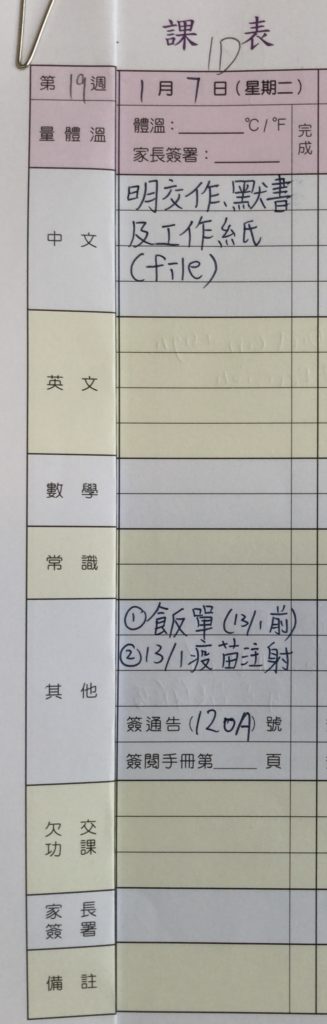 課 1D 表
第 19 週
1 月 7 日(星期二)
量 體 溫
體溫:______℃/℉
家長簽署:______
完成
中 文
明交作、默書
及工作紙
(file)
英 文
數 學
常 識
其 他
①飯單(13/1前)
②13/1疫苗注射
簽通告(120A)號
簽閱手冊第____頁
欠 交
功 課
家 長
簽 署
備 註